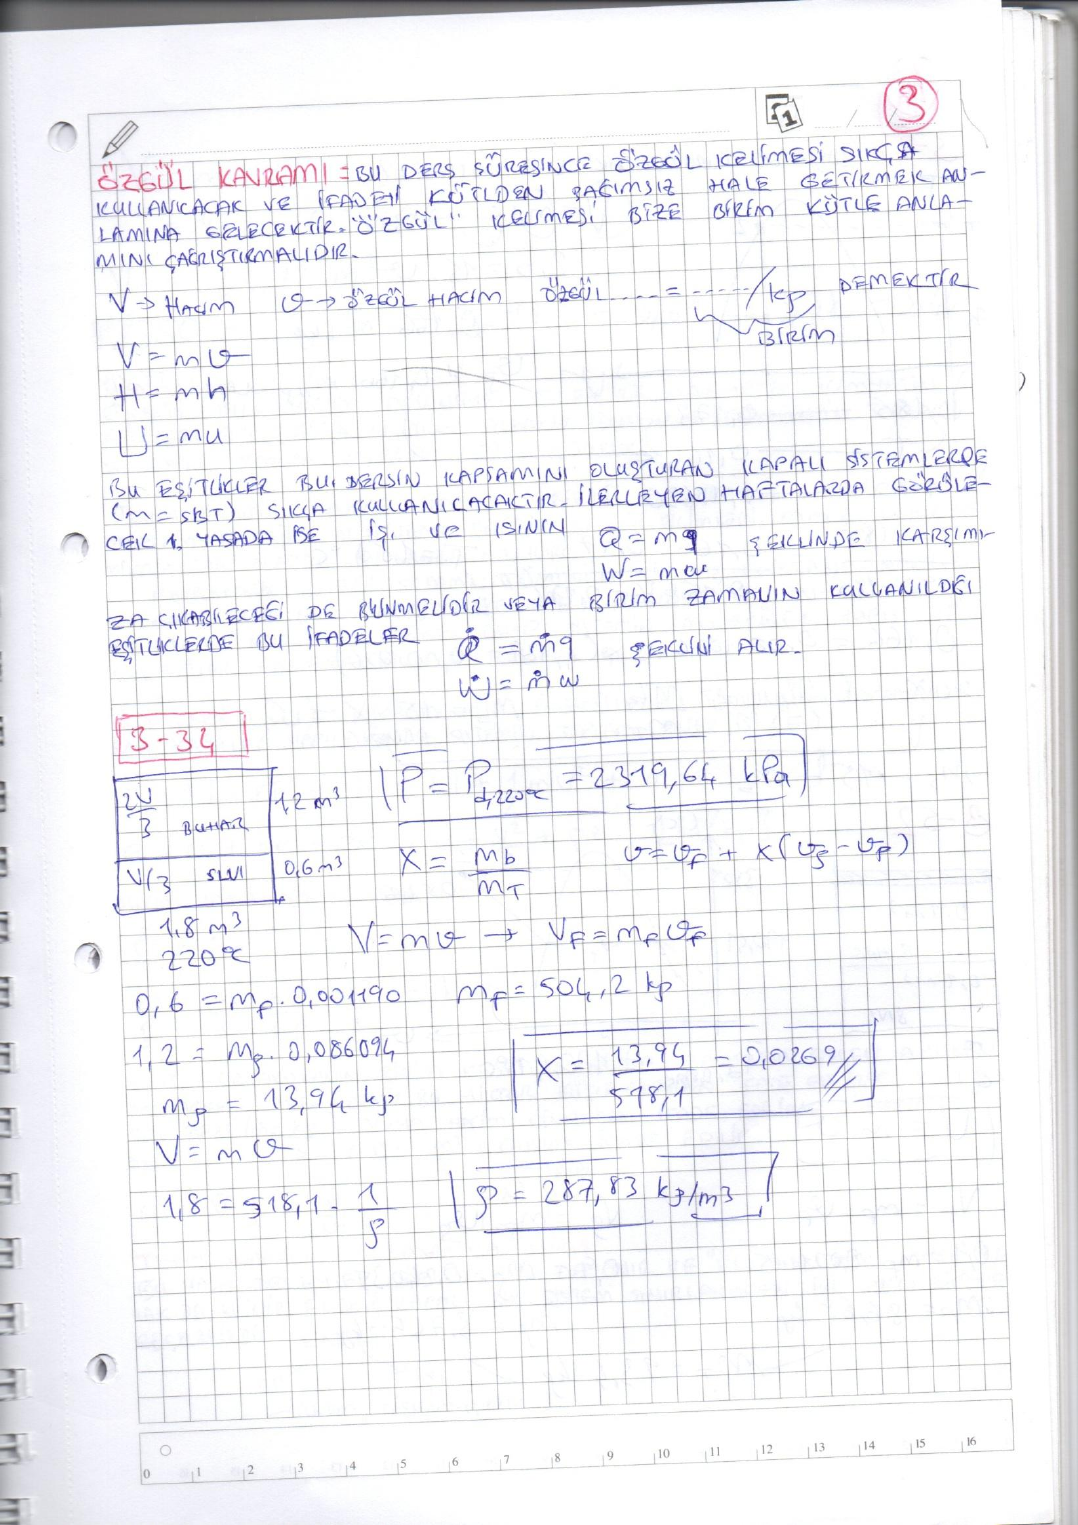 3
ÖZGÜL KAVRAMI = BU DERS SÜRESİNCE ÖZGÜL KELİMESİ SIKÇA
KULLANILACAK VE İFADEYİ KÜTLEDEN BAĞIMSIZ HALE GETİRMEK AN-
LAMINA GELECEKTİR. "ÖZGÜL" KELİMESİ BİZE BİRİM KÜTLE ANLA-
MINI ÇAĞRIŞTIRMALIDIR.
V → HACİM υ → ÖZGÜL HACİM ÖZGÜL .... = ...../kg DEMEKTİR
BİRİM
V = mυ
H = mh
U = mu
BU EŞİTLİKLER BU DERSİN KAPSAMINI OLUŞTURAN KAPALI SİSTEMLERDE
(m = SBT) SIKÇA KULLANILACAKTIR. İLERLEYEN HAFTALARDA GÖRÜLE-
CEK 1. YASADA İSE İŞ VE ISININ Q = mq ŞEKLİNDE KARŞIMI-
W = mw
ZA ÇIKABİLECEĞİ DE BİLİNMELİDİR VEYA BİRİM ZAMANIN KULLANILDIĞI
EŞİTLİKLERDE BU İFADELER Q̇ = ṁq ŞEKLİNİ ALIR.
Ẇ = ṁw
3-34
2V/3 BUHAR 1,2 m³ P = Pd,220°C = 2319,64 kPa
V/3 SIVI 0,6 m³ X = mb/mT υ = υf + X(υg - υf)
1,8 m³
220°C V = mυ → Vf = mf υf
0,6 = mf . 0,001190 mf = 504,2 kg
1,2 = mg . 0,086094 X = 13,94/518,1 = 0,0269
mg = 13,94 kg
V = mυ
1,8 = 518,1 . 1/ρ ρ = 287,83 kg/m³
0 1 2 3 4 5 6 7 8 9 10 11 12 13 14 15 16